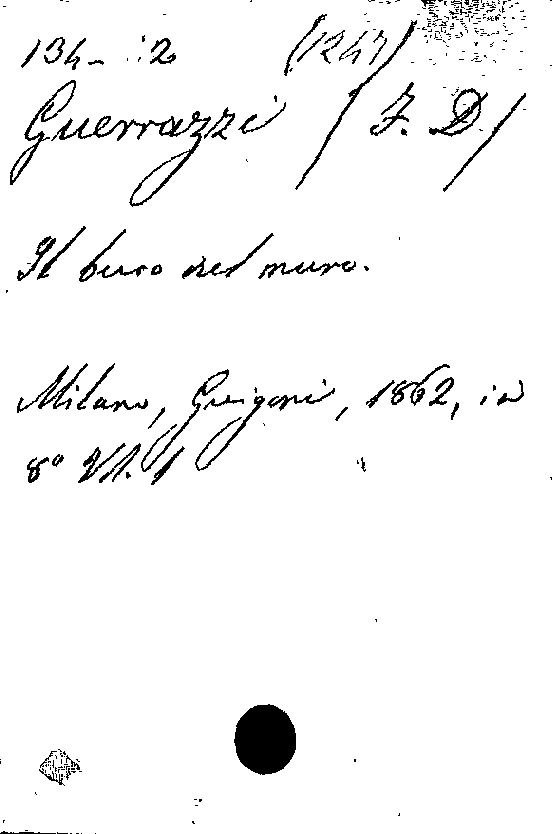 134- 2 (1247)
Guerrazzi / F. D /
Il buco nel muro.
Milano, Guigoni, 1862, in
8° Vl. 1